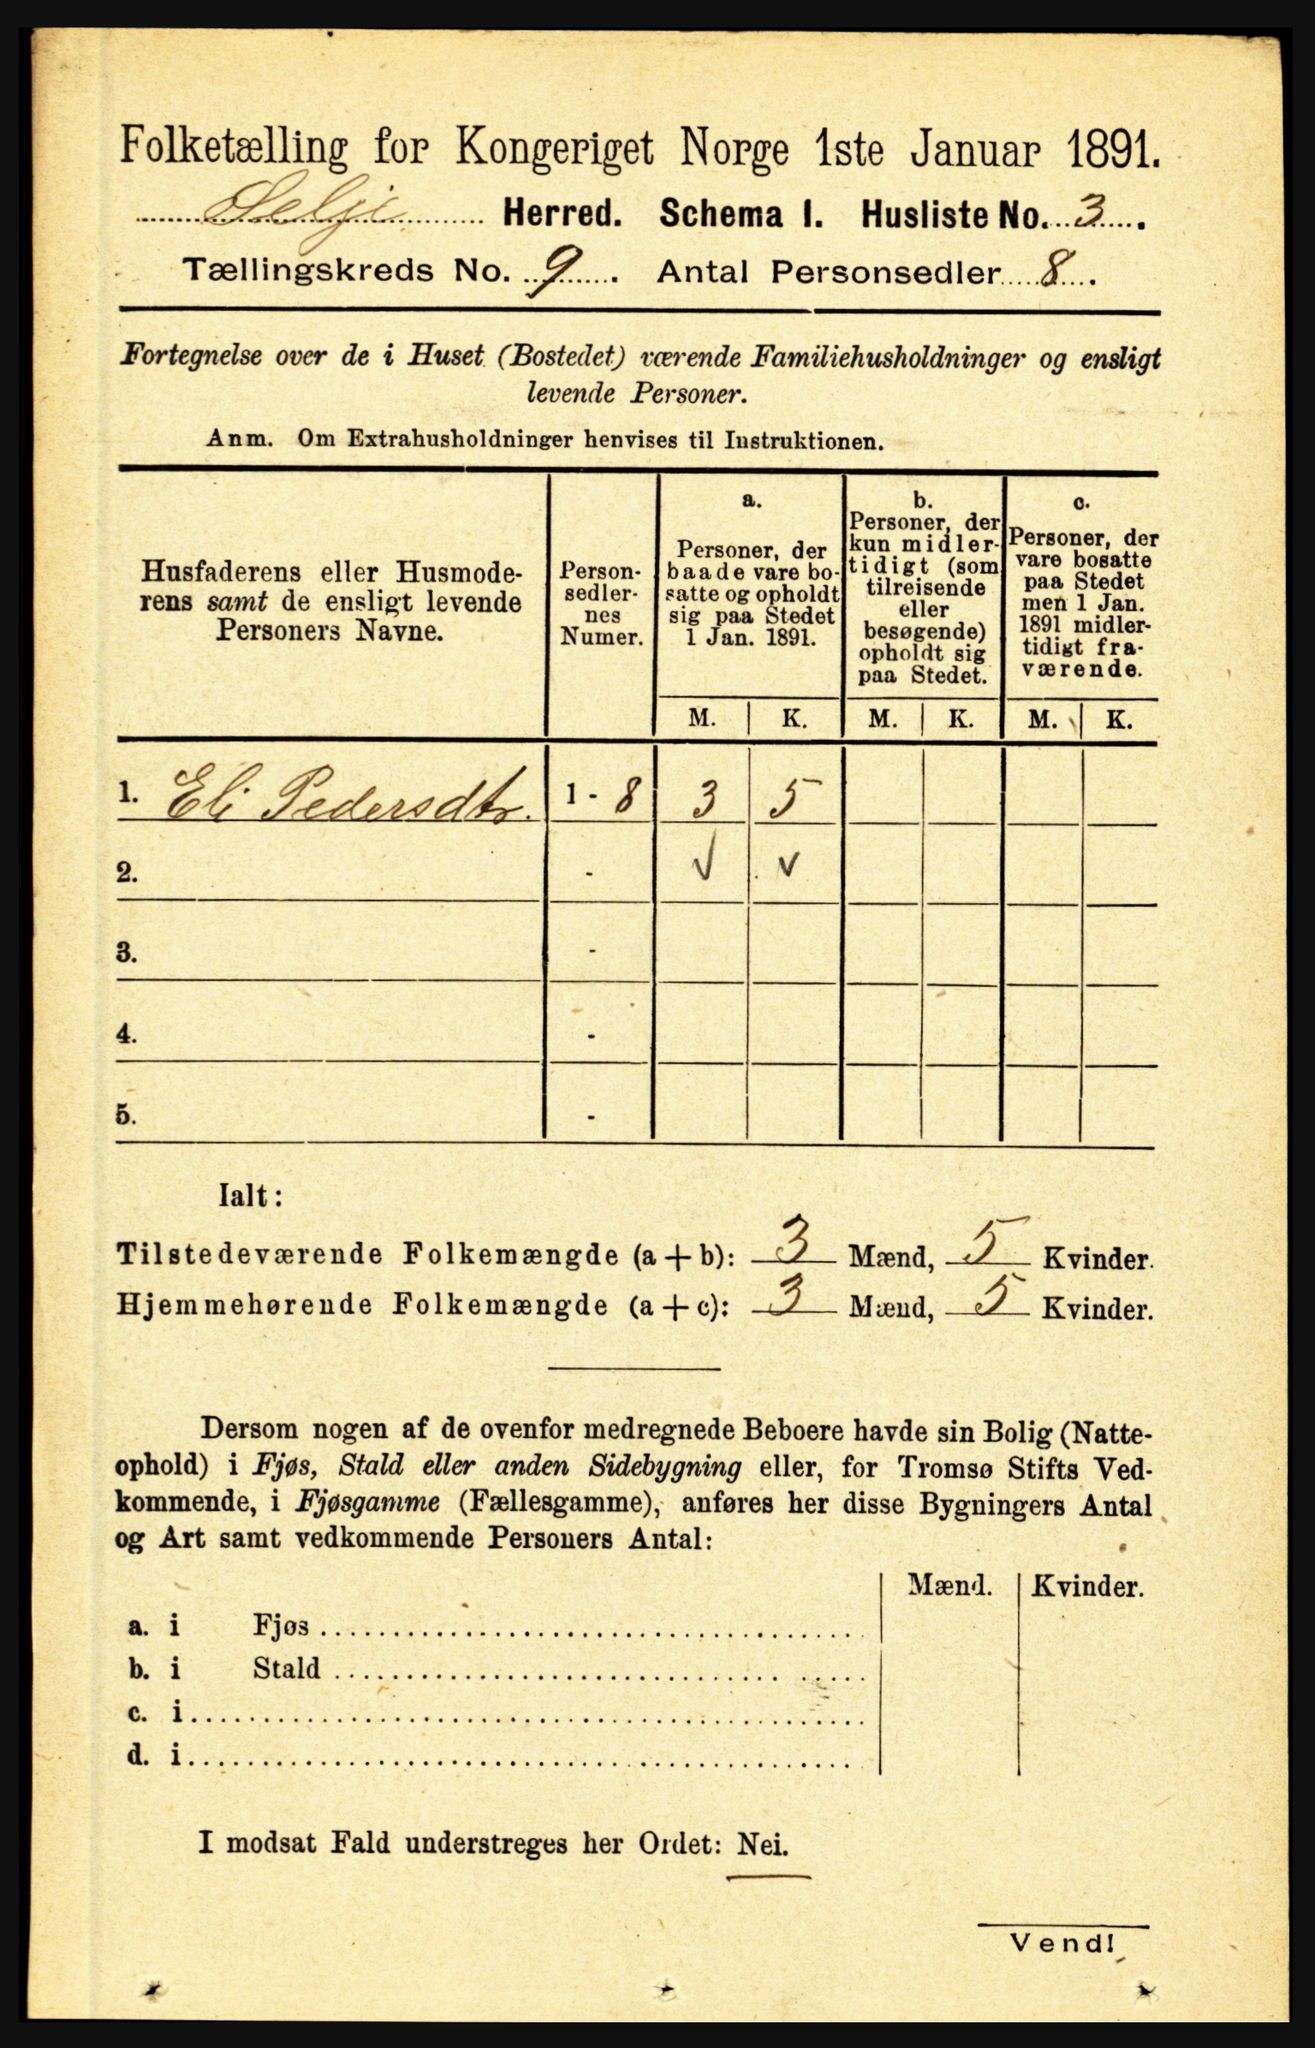 Folketælling for Kongeriget Norge 1ste Januar 1891.
Selje Herred. Schema I. Husliste No. 3.
Tællingskreds No. 9. Antal Personsedler 8.
Fortegnelse over de i Huset (Bostedet) værende Familiehusholdninger og ensligt
levende Personer.
Anm. Om Extrahusholdninger henvises til Instruktionen.
Husfaderens eller Husmode-
rens samt de ensligt levende
Personers Navne.
Person-
sedler-
nes
Numer.
a.
Personer, der
baade vare bo-
satte og opholdt
sig paa Stedet
1 Jan. 1891.
b.
Personer, der
kun midler-
tidigt (som
tilreisende
eller
besøgende)
opholdt sig
paa Stedet.
c.
Personer, der
vare bosatte
paa Stedet
men 1 Jan.
1891 midler-
tidigt fra-
værende.
M. K. M. K. M. K.
1. Eli Pedersdtr. 1 - 8 3 5
2. - √ √
3. -
4. -
5. -
Ialt:
Tilstedeværende Folkemængde (a + b): 3 Mænd, 5 Kvinder.
Hjemmehørende Folkemængde (a + c): 3 Mænd, 5 Kvinder.
Dersom nogen af de ovenfor medregnede Beboere havde sin Bolig (Natte-
ophold) i Fjøs, Stald eller anden Sidebygning eller, for Tromsø Stifts Ved-
kommende, i Fjøsgamme (Fællesgamme), anføres her disse Bygningers Antal
og Art samt vedkommende Personers Antal:
Mænd. Kvinder.
a. i Fjøs
b. i Stald
c. i
d. i
I modsat Fald understreges her Ordet: Nei.
Vend!